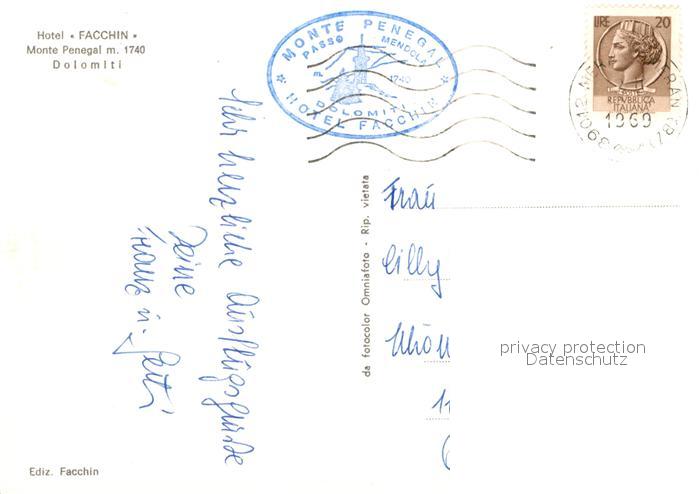 Hotel « FACCHIN »
Monte Penegal m. 1740
Dolomiti
MONTE PENEGAL
PASSO MENDOLA
m. 1740
DOLOMITI
HOTEL FACCHIN
LIRE 20
REPVBBLICA
ITALIANA
39012
1969
Sehr herzliche Ausflugsgrüße
Deine
Franz u.
da fotocolor Omniafoto - Rip. vietata
Frau
Cilly
11
privacy protection
Datenschutz
Ediz. Facchin